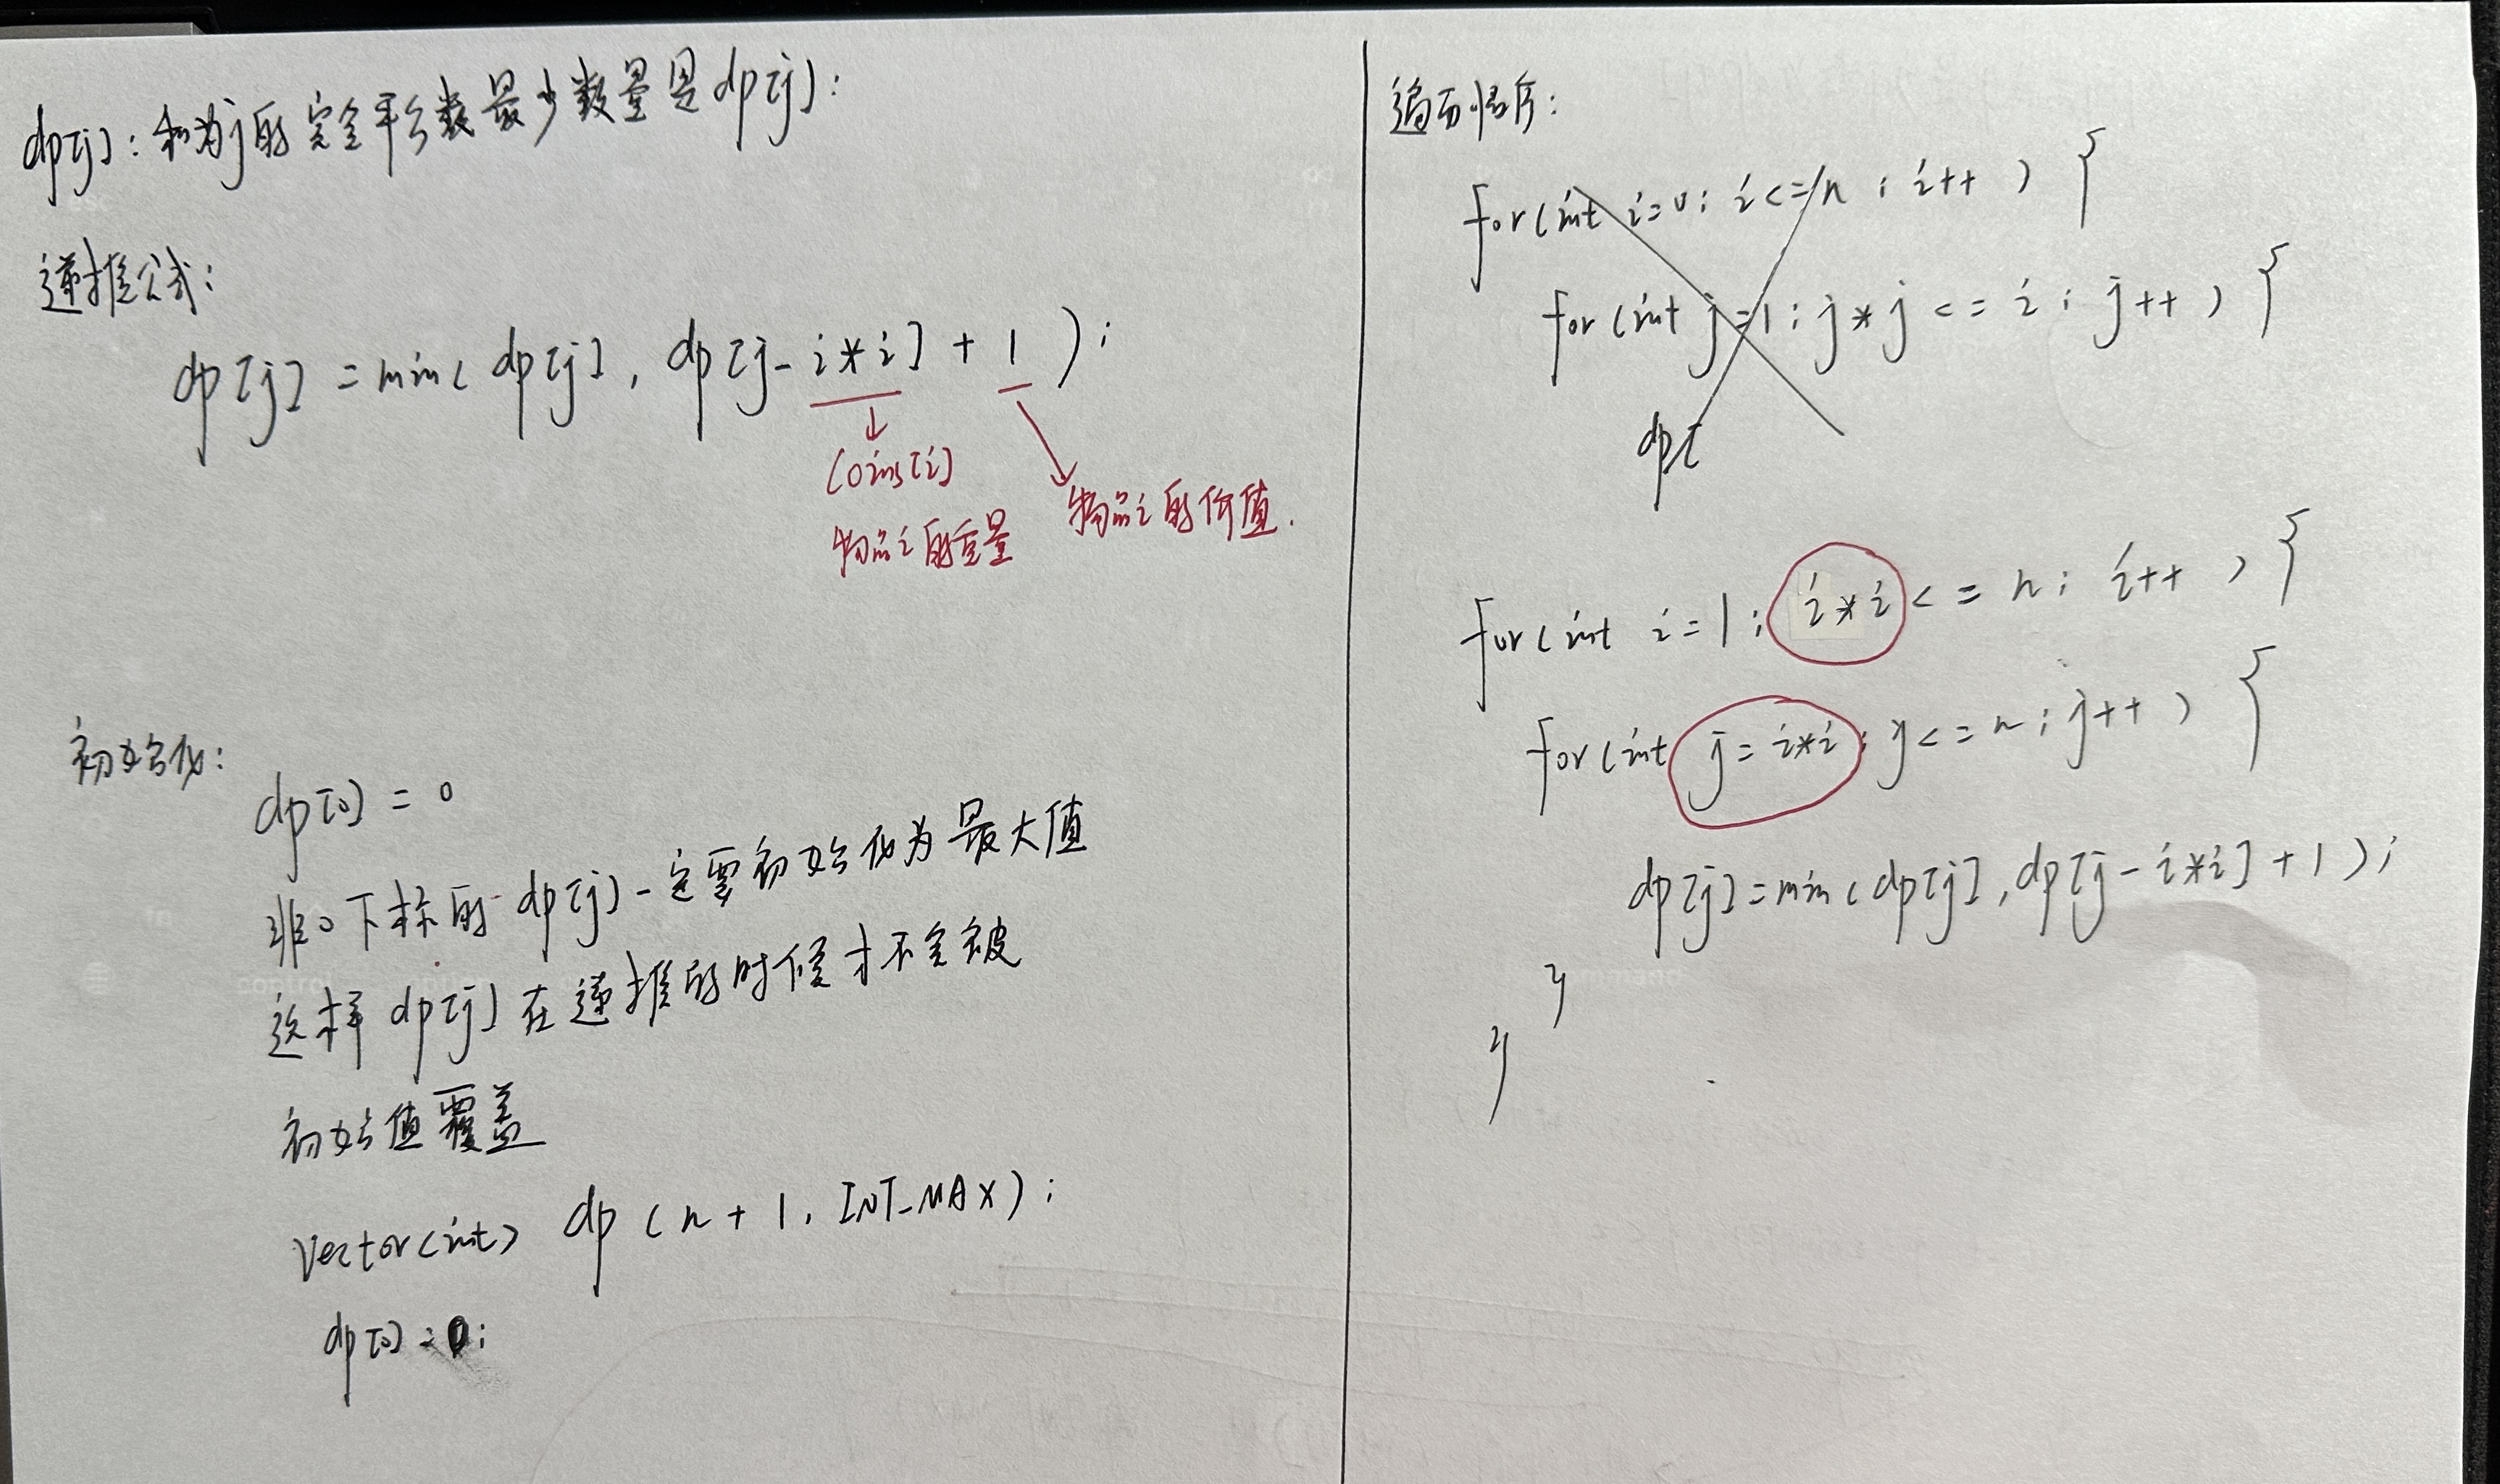 dp[j]: 和为j的完全平方数最少数量是dp[j]:
递推公式:
dp[j] = min( dp[j], dp[j-i*i] + 1 );
coins[i]
物品i的重量
物品i的价值.
初始化:
dp[0] = 0
非0下标的dp[j]一定要初始化为最大值
这样dp[j]在递推的时候才不会被
初始值覆盖
vector<int> dp ( n + 1, INT_MAX );
dp[0] = 0;
遍历顺序:
for(int i=0; i<=n; i++) {
for(int j=1; j*j <= i; j++) {
dp[
for(int i=1; i*i <= n; i++) {
for(int j=i*i; j<=n; j++) {
dp[j]=min(dp[j],dp[j-i*i]+1);
}
}